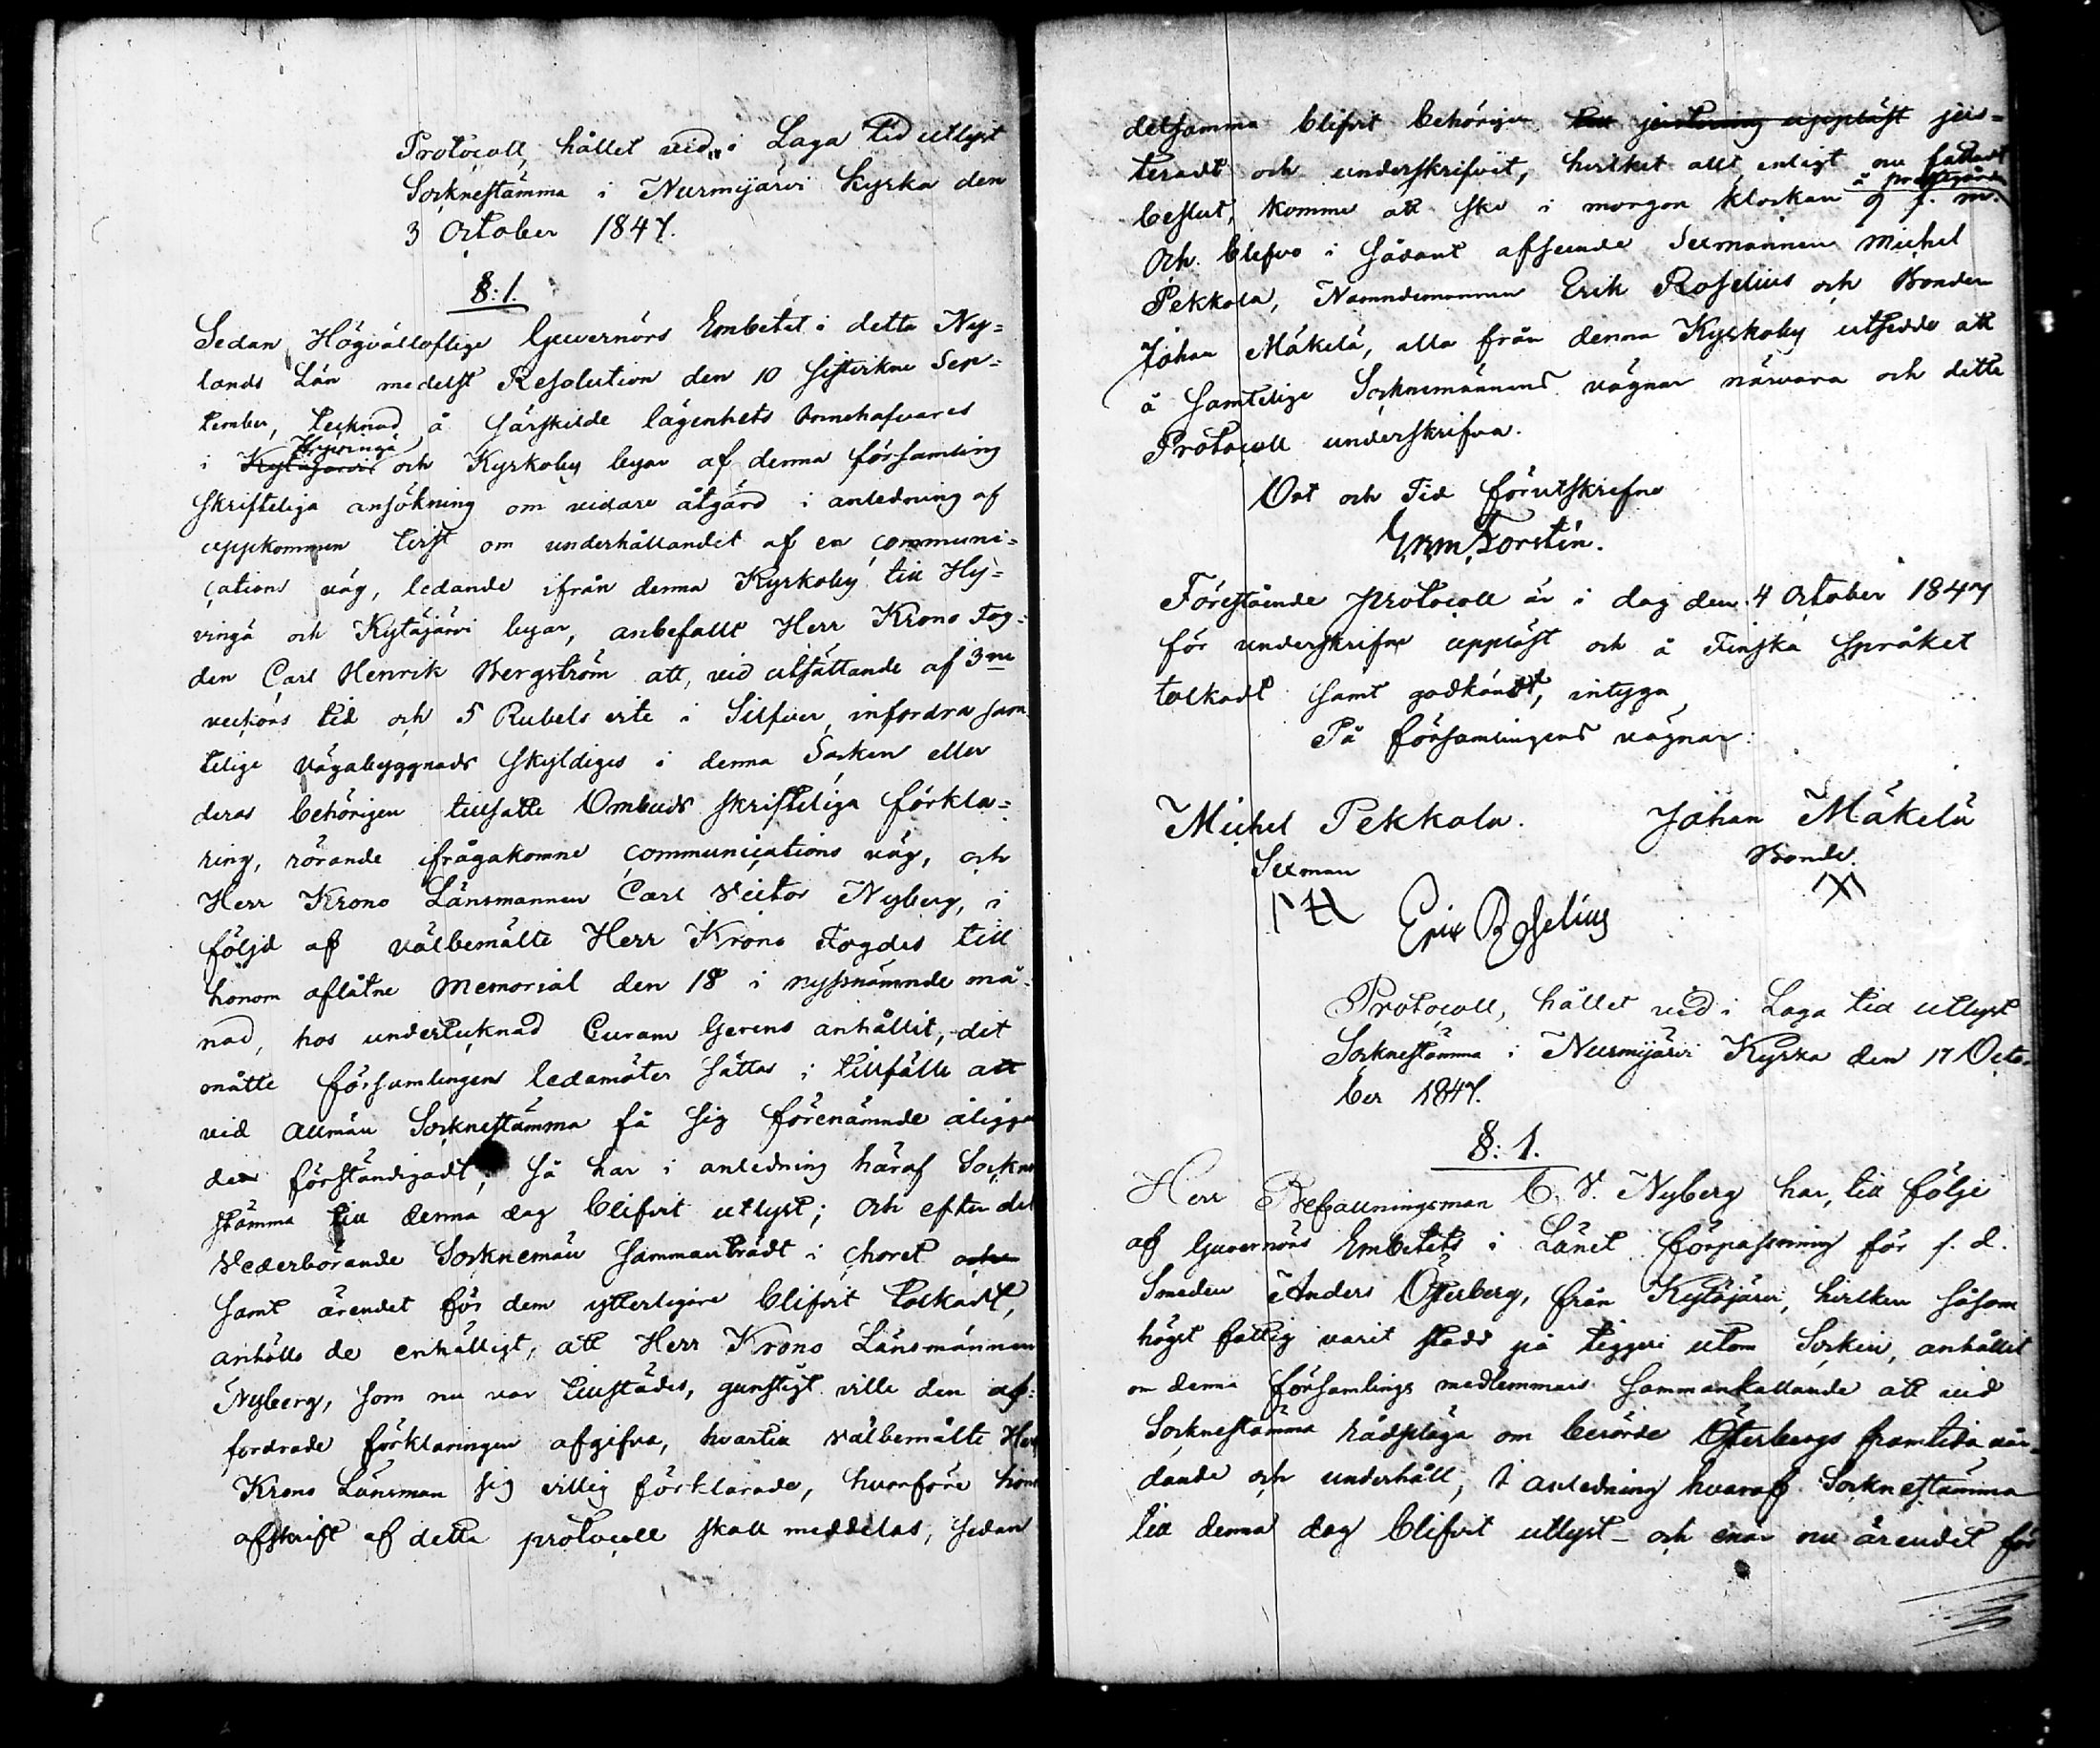 Protocoll, hållet vid i Laga tid utlyst
Socknestämma i Nurmijärvi Kyrka den
3 October 1847.
§: 1.
Sedan Högvälloflige Guvernörs Embetet i detta Ny=
lands Län medelst Resolution den 10 sistvikne Sep=
tember, tecknad å särskilde lägenhets innehafvares
Hyvingä
i Kytäjärvis och Kyrkoby byar af denna församling
skrifteliga ansökning om vidare åtgärd i anledning af
uppkommen tvist om underhållandet af en communi=
cations väg, ledande ifrån denna Kyrkoby till Hy=
vingä och Kytäjärvi byar, anbefallt Herr Krono Fog=
den Carl Henrik Bergström att, vid utsättande af 3ne
veckors tid och 5 Rubels vite i Silfver, infordra sam
telige vägabyggnads skyldiges i denna Socken eller
deras behörigen tillsatte Ombuds skrifteliga förkla=
ring, rörande ifrågakomne communications väg, och
Herr Krono Länsmannen Carl Victor Nyberg, i
följd af välbemälte Herr Krono Fogdes till
honom aflåtne Memorial den 18 i nyssnämnde må=
nad, hos undertecknad Curam Gerens anhållit, det
måtte församlingens ledamöter sättas i tillfälle att
vid allmän Socknestämma få sig förenämnde åliggan
den förständigadt, Så har i anledning häraf Sockne
stämma till denna dag blifvit utlyst; Och efter det
Vederbörande Socknemän sammanträdt i choret och
samt ärendet för dem ytterligare blifvit tolkadt,
anhöllo de enhälligt, att Herr Krono Länsmannen
Nyberg, som nu var tillstädes, gunstigt ville den af=
fordrade förklaringen afgifva, hvartill Välbemälte Herr
Krono Länsman sig villig förklarade, hvarföre honom
afskrift af detta protocoll skall meddelas, sedan
detsamma blifvit behörigen till justering uppläst jus=
teradt och underskrifvit, hvilket allt enligt nu fattadt
å prästgården
beslut, kommer att ske i morgon klockan 9 f. m.
Och blefvo i sådant afseende Sexmannen Michel
Pekkola, Nämndemannen Erik Roselius och Bonden
Johan Mäkelä, alla från denna Kyrkoby utsedde att
å samtelige Socknemännens vägnar närvara och detta
Protocoll underskrifva.
Ort och Tid förutskrefne
Förestående Protocoll är i dag den 4 October 1847
för underskrifne uppläst och å Finska Språket
tolkadt samt godkändt, intyga
På församlingens vägnar:
Michel Pekkola. Johan Mäkelä
Sexman Bonde.
Erik Roselius
Protocoll, hållet vid i Laga tid utlyst
Socknestämma i Nurmijärvi Kyrka den 17 Octo-
ber 1847.
§: 1.
Herr Befallningsman C. V. Nyberg har, till följe
af Guvernörs Embetets i Länet förpassning för f. d.
Smeden Anders Österberg, från Kytäjärvi, hvilken såsom
högst fattig varit stadd på tiggeri utom Socken, anhållit
om denna församlings medlemmars sammankallande att vid
Socknestämma rådpläga om berörde Österbergs framtida vår-
dande och underhåll, i anledning hvaraf Socknestämma
till denna dag blifvit utlyst – och enär nu ärendet för